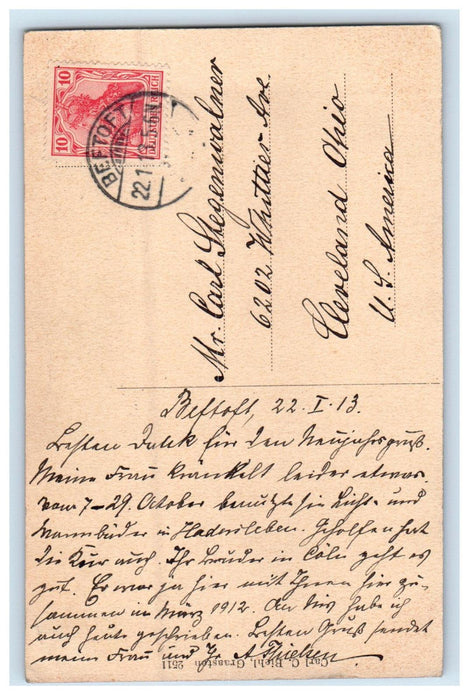 10
10
DEUTSCHES REICH
BEFTOFT
22.1.13.
Mr. Carl Stegenwalner
6202 Whittier Ave.
Cleveland Ohio
U. S. America
Beftoft, 22. I. 13.
Besten Dank für den Neujahrsgruß.
Meine Frau kränkelt leider etwas.
Vom 7-29. October benutzte sie Licht- und
Wannbäder in Hadersleben. Geholfen hat
die Kur auch. Ihr Bruder in Cöln geht es
gut. Er war ja hier mit Ihnen hier zu-
sammen im März 1912. An ihn habe ich
auch heute geschrieben. Besten Gruß sendet
meine Frau und Ihr A
Carl C. Biehl, Gramston 2511